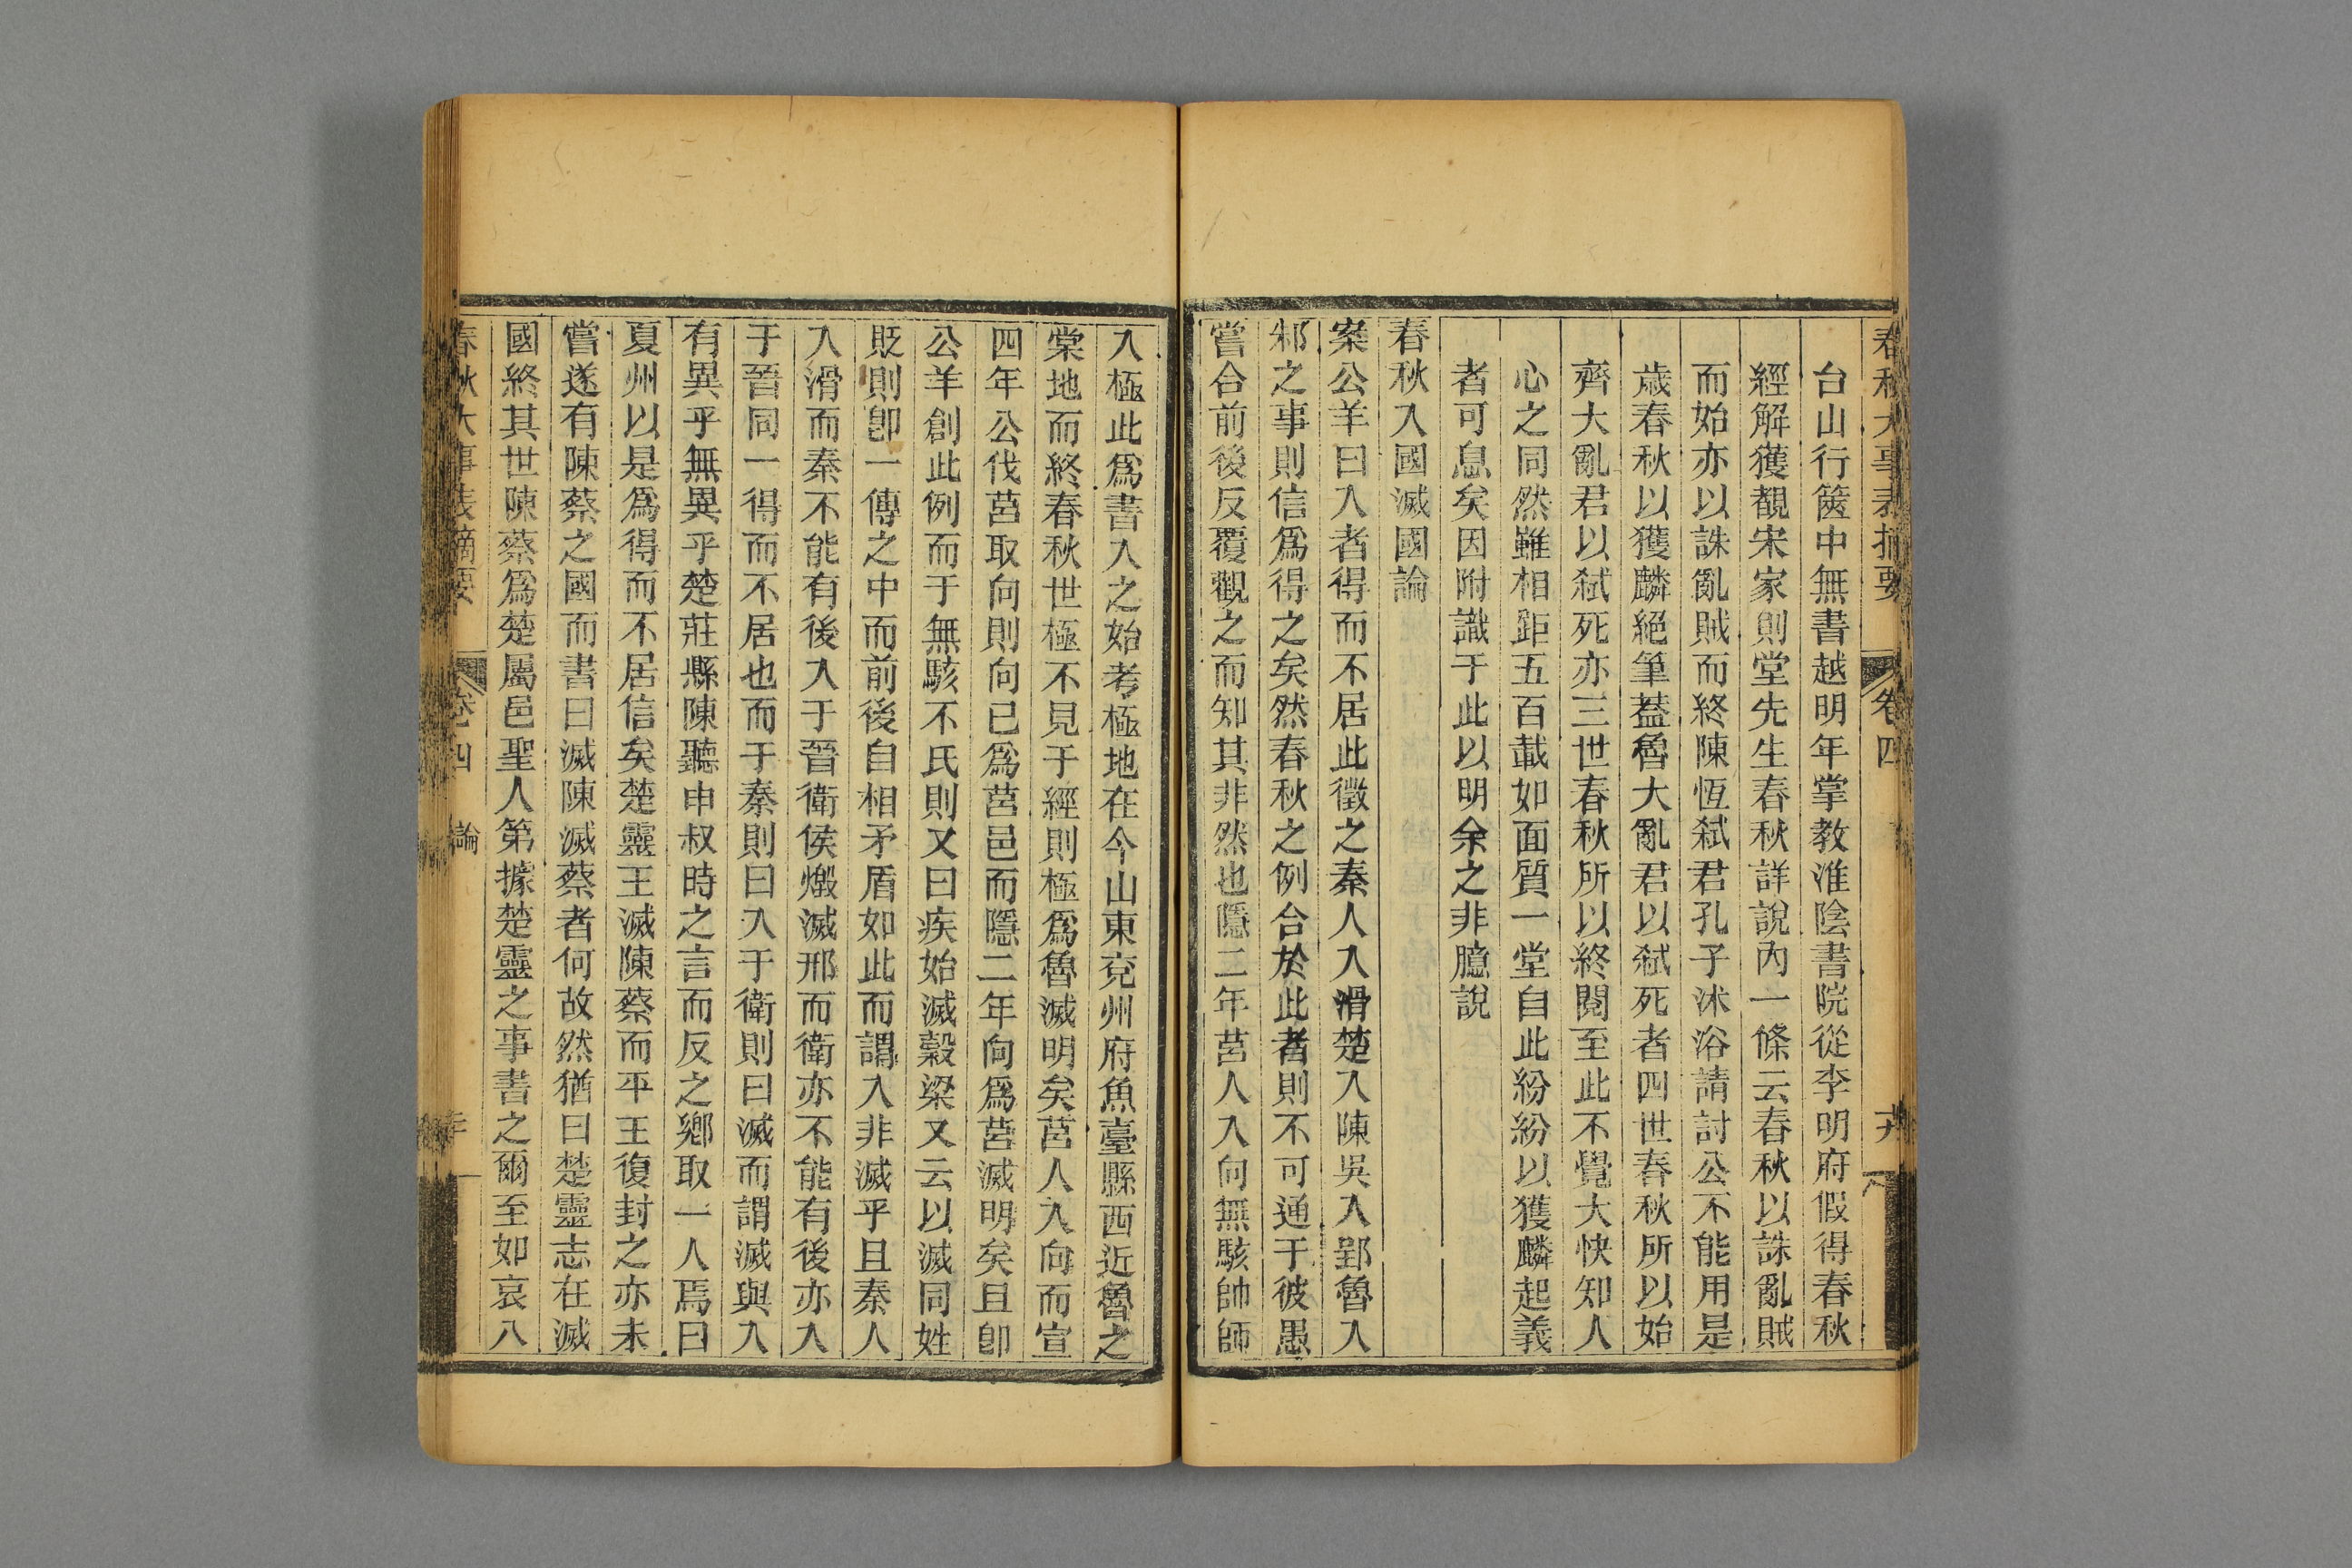 春秋大事表摘要 卷四
台山行篋中無書越明年掌教淮陰書院從李明府假得春秋
經解獲覩宋家則堂先生春秋詳說內一條云春秋以誅亂賊
而始亦以誅亂賊而終陳恆弒君孔子沐浴請討公不能用是
歲春秋以獲麟絕筆葢魯大亂君以弒死者四世春秋所以始
齊大亂君以弒死亦三世春秋所以終閱至此不覺大快知人
心之同然雖相距五百載如面質一堂自此紛紛以獲麟起義
者可息矣因附識于此以明余之非臆說
春秋入國滅國論
案公羊曰入者得而不居此徵之秦人入滑楚入陳吳入郢魯入
邾之事則信爲得之矣然春秋之例合於此者則不可通于彼愚
嘗合前後反覆觀之而知其非然也隱二年莒人入向無駭帥師
入極此爲書入之始考極地在今山東兗州府魚臺縣西近魯之
棠地而終春秋世極不見于經則極爲魯滅明矣莒人入向而宣
四年公伐莒取向則向已爲莒邑而隱二年向爲莒滅明矣且卽
公羊創此例而于無駭不氏則又曰疾始滅穀梁又云以滅同姓
貶則卽一傳之中而前後自相矛盾如此而謂入非滅乎且秦人
入滑而秦不能有後入于晉衛侯燬滅邢而衛亦不能有後亦入
于晉同一得而不居也而于秦則曰入于衛則曰滅而謂滅與入
有異乎無異乎楚莊縣陳聽申叔時之言而反之鄉取一人焉曰
夏州以是爲得而不居信矣楚靈王滅陳蔡而平王復封之亦未
嘗遂有陳蔡之國而書曰滅陳滅蔡者何故然猶曰楚靈志在滅
國終其世陳蔡爲楚屬邑聖人第據楚靈之事書之爾至如哀八
春秋大事表摘要 卷四 論